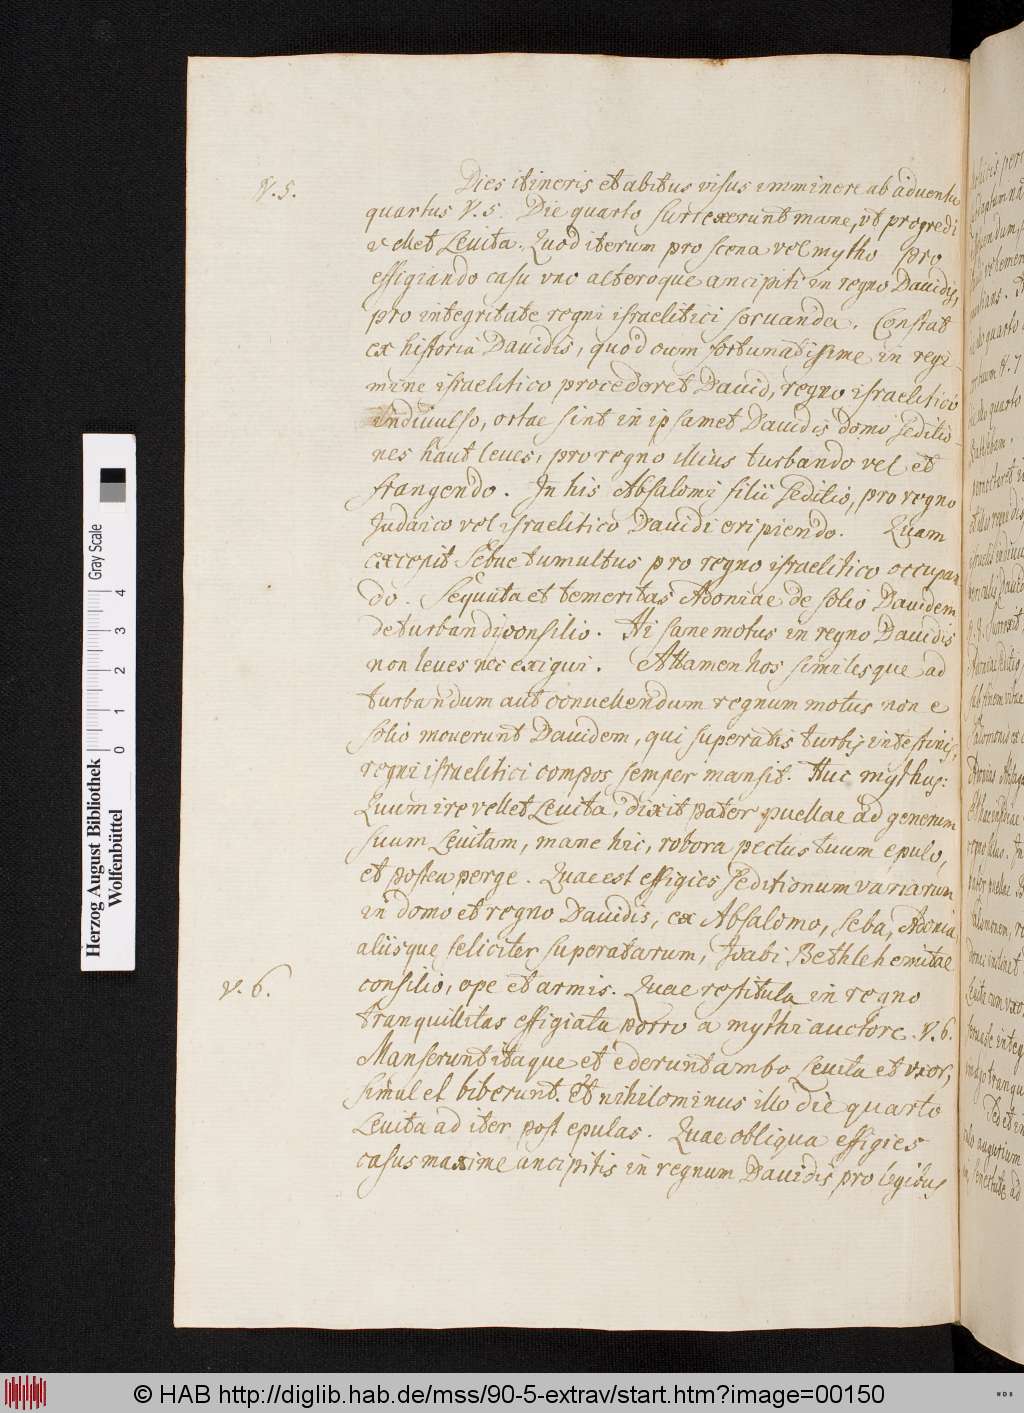 V. 5.
Dies itineris et abitus visus imminere ab adventu
quartus V. 5. Die quarto surrexerunt mane, vt progredi
vellet Levita. Quod iterum pro scena vel mytho pro
effigiando casu vno alteroque ancipiti in regno Davidis,
pro integritate regni israelitici servanda. Constat
ex historia Davidis, quod cum fortunatissime in regi-
mine israelitico procederet David, regno israelitico
indivulso, ortae sint in ipsamet Davidis domo seditio-
nes haut leves, pro regno illius turbando vel et
frangendo. In his Absalomi filii seditio, pro regno
Judaico vel israelitico Davidi eripiendo. Quam
excepit Sebae tumultus pro regno israelitico occupan
do. Sequuta et temeritas Adoniae de solio Davidem
deturbandi consilio. Hi sane motus in regno Davidis
non leves nec exigui. Attamen hos similesque ad
turbandum aut convellendum regnum motus non e
solio moverunt Davidem, qui superatis turbis intestinis,
regni israelitici compos semper mansit. Huc mythus:
Quum ire vellet Levita, dixit pater puellae ad generum
suum Levitam, mane hic, robora pectus tuum epulo,
et postea perge. Quae est effigies seditionum variarum
in domo et regno Davidis, ex Absalomo, Seba, Adonia
aliisque feliciter superatarum, Joabi Bethlehemitae
V. 6.
consilio, ope et armis. Quae restituta in regno
tranquillitas effigiata porro a mythi auctore. V. 6.
Manserunt itaque et ederunt ambo Levita et vxor,
simul et biberunt. Et nihilominus illo die quarto
Levita ad iter post epulas. Quae obliqua effigies
casus maxime ancipitis in regnum Davidis pro legibus
Herzog August Bibliothek
Wolfenbüttel
0 1 2 3 4
Gray Scale
© HAB http://diglib.hab.de/mss/90-5-extrav/start.htm?image=00150